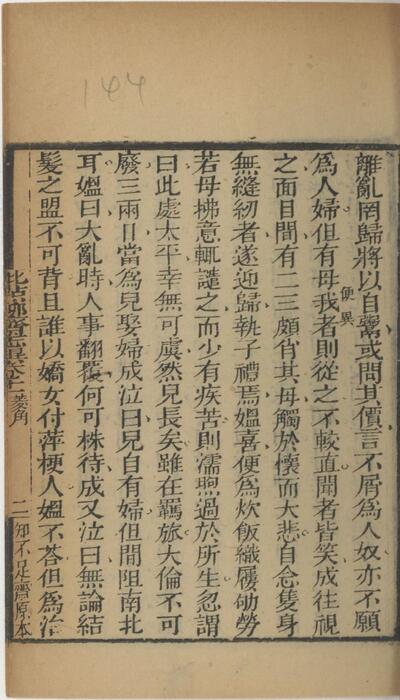 144
離亂罔歸將以自鬻或問其價言不屑爲人奴亦不願
爲人婦但有母我者則從之不較直聞者皆笑成往視
便異
之面目間有二三頗肖其母觸於懷而大悲自念隻身
無縫紉者遂迎歸執子禮焉媼喜便爲炊飯織屨劬勞
若母拂意輒譴之而少有疾苦則濡煦過於所生忽謂
曰此處太平幸無可虞然兒長矣雖在羈旅大倫不可
廢三兩日當爲兒娶婦成泣曰兒自有婦但間阻南北
耳媼曰大亂時人事翻覆何可株待成又泣曰無論結
髮之盟不可背且誰以嬌女付萍梗人媼不荅但爲治
菱角
二 知不足齋原本